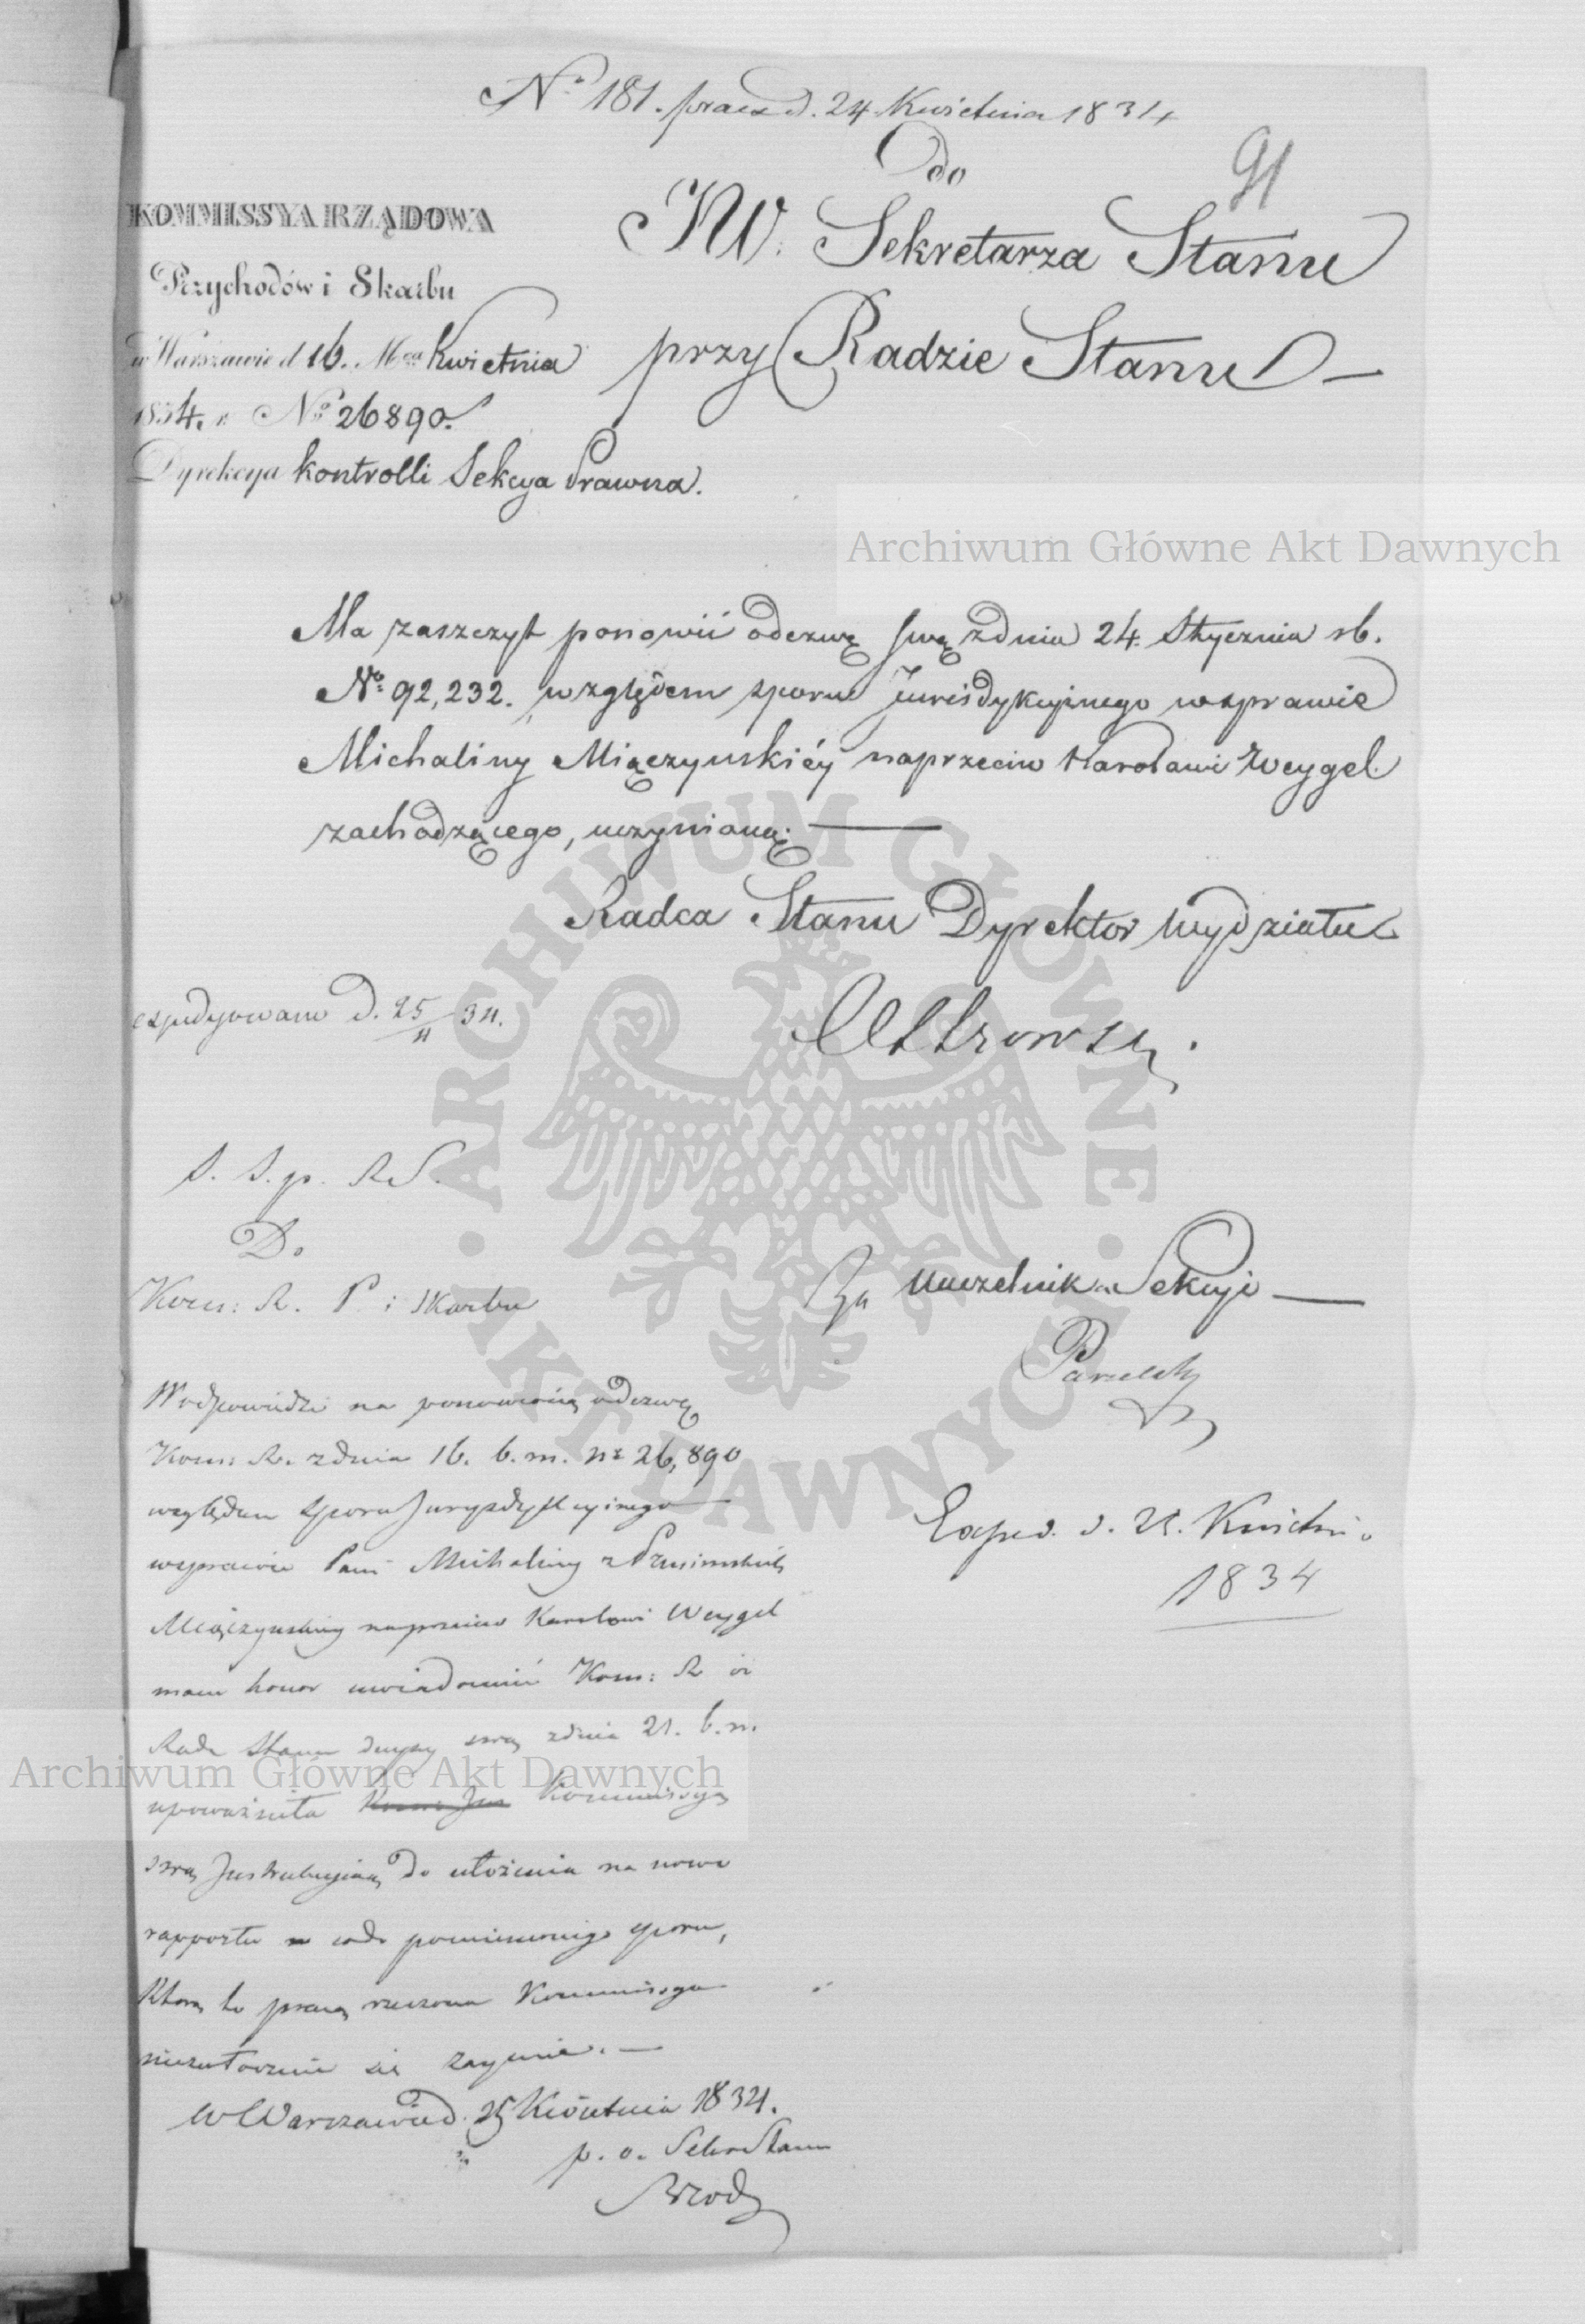 No 181. praes d. 24 Kwietnia 1834
91
Do
JW. Sekretarza Stanu
przy Radzie Stanu —
KOMMISSYA RZĄDOWA
Przychodów i Skarbu
w Warszawie d 16. Mca Kwietnia
1834. r. No 26890.
Dyrekcya kontrolli Sekcya Prawna.
Archiwum Główne Akt Dawnych
Ma zaszczyt ponowić odezwę swą z dnia 24. Stycznia rb.
No 92,232. względem sporu Jurisdykcyjnego w sprawie
Michaliny Miączyńskiéy naprzeciw Karolowi Weygel
zachodzącego, uczynioną. —
Radca Stanu Dyrektor Wydziału
expedyowano d. 25/4 34.
S. S. p. R S.
Do
Kom: R. P. i Skarbu
Za Naczelnik Sekcyi —
W odpowiedzi na ponowioną odezwę
Kom: R. z dnia 16. b. m. No 26,890
względem sporu Jurysdykcyinego
w sprawie Pani Michaliny z
Miączyńskiey naprzeciw Karolowi Weygel
mam honor uwiadomić Kom: R iż
Rada Stanu decyzyą swą z dnia 21. b. m.
Archiwum Główne Akt Dawnych
upoważniła Kommissyą
swą Instrukcyiną do ułożenia na nowo
rapportu co do pomienionego sporu,
którą to pracą rzeczona Kommissya
niezwłocznie się zaymie. —
w Warszawie d. 25 Kwietnia 1834.
p. o. Sekr Stanu
Exped. d. 25. Kwietnia
1834
ARCHIWUM GŁÓWNE AKT DAWNYCH